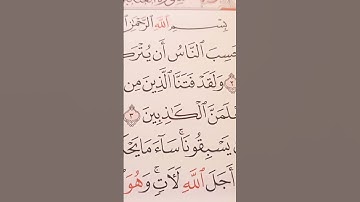 بِسْمِ اللَّهِ الرَّحْمَٰنِ
حَسِبَ النَّاسُ أَن يُتْرَكُ
٢ وَلَقَدْ فَتَنَّا الَّذِينَ مِن
لَمَنَّ الْكَاذِبِينَ ٣
يَسْبِقُونَا ۚ سَاءَ مَا يَحْكُ
أَجَلَ اللَّهِ لَآتٍ ۚ وَهُوَ